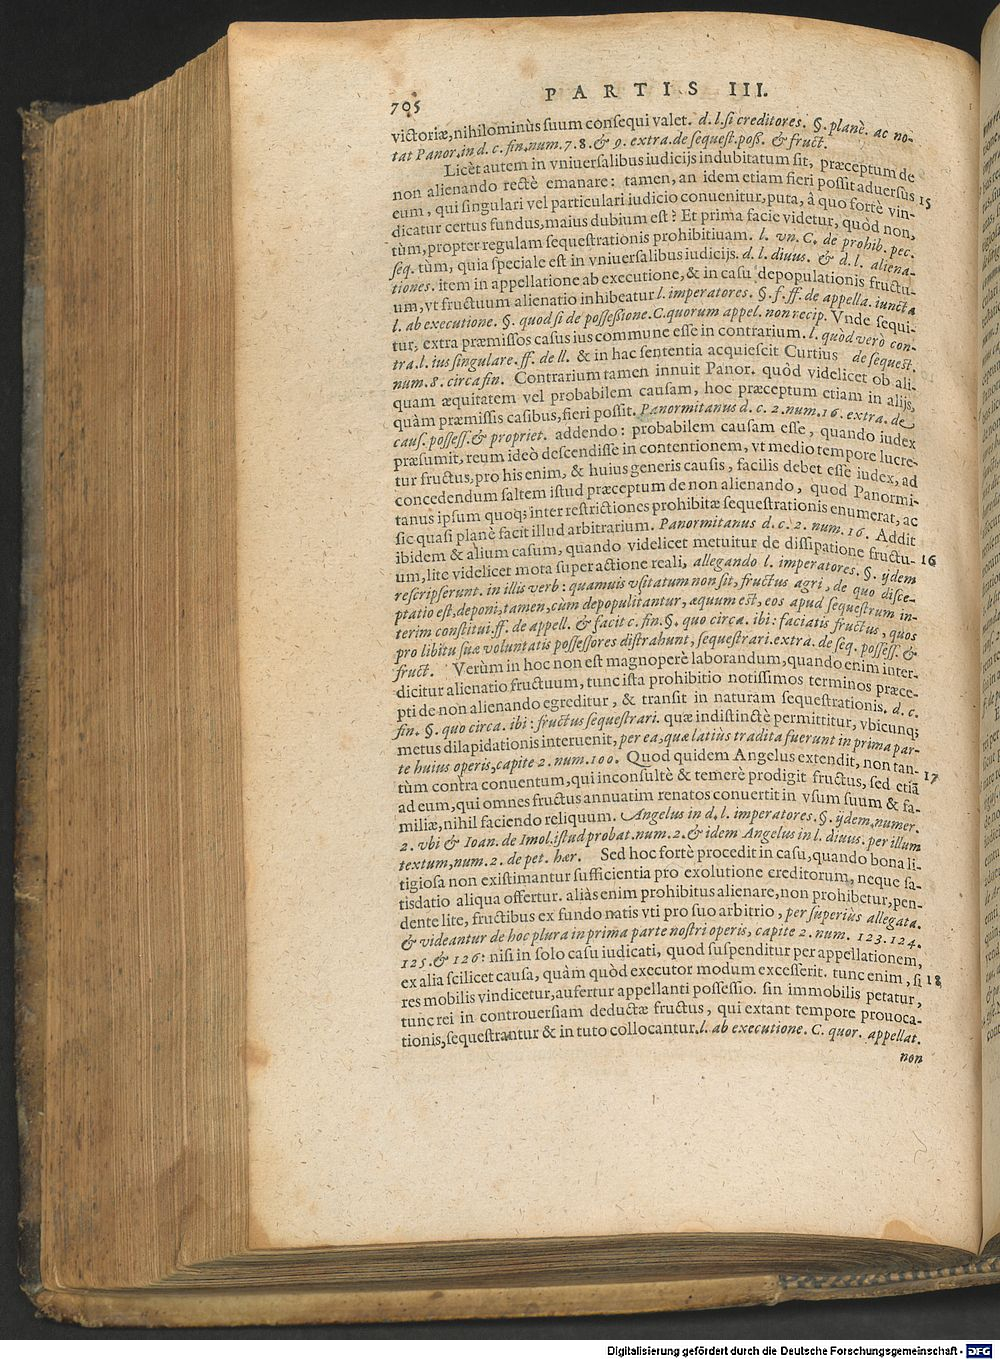 705
PARTIS III.
victoriæ, nihilominùs suum consequi valet. d. l. si creditores. §. planè. ac no-
tat Panor. in d. c. fin. num. 7. 8. & 9. extra. de sequest. poß. & fruct.
Licèt autem in vniuersalibus iudicijs indubitatum sit, præceptum de
non alienando rectè emanare: tamen, an idem etiam fieri possit aduersus 15
eum, qui singulari vel particulari iudicio conuenitur, puta, â quo fortè vin-
dicatur certus fundus, maius dubium est? Et prima facie videtur, quòd non,
tùm, propter regulam sequestrationis prohibitiuam. l. vn. C. de prohib. pec.
seq. tùm, quia speciale est in vniuersalibus iudicijs. d. l. diuus. & d. l. aliena-
tiones. item in appellatione ab executione, & in casu depopulationis fructu-
um, vt fructuum alienatio inhibeatur l. imperatores. §. f. ff. de appella. iuncta
l. ab executione. §. quod si de possessione. C. quorum appel. non recip. Vnde sequi-
tur, extra præmissos casus ius commune esse in contrarium. l. quod verò con-
tra. l. ius singulare. ff. de ll. & in hac sententia acquiescit Curtius de sequest.
num. 8. circa fin. Contrarium tamen innuit Panor. quòd videlicet ob ali-
quam æquitatem vel probabilem causam, hoc præceptum etiam in alijs,
quàm præmissis casibus, fieri possit. Panormitanus d. c. 2. num. 16. extra. de
caus. possess. & propriet. addendo: probabilem causam esse, quando iudex
præsumit, reum ideò descendisse in contentionem, vt medio tempore lucre-
tur fructus, pro his enim, & huius generis causis, facilis debet esse iudex, ad
concedendum saltem istud præceptum de non alienando, quod Panormi-
tanus ipsum quoq; inter restrictiones prohibitæ sequestrationis enumerat, ac
sic quasi planè facit illud arbitrarium. Panormitanus d. c. 2. num. 16. Addit
ibidem & alium casum, quando videlicet metuitur de dissipatione fructu- 16
um, lite videlicet mota super actione reali, allegando l. imperatores. §. ijdem
rescripserunt. in illis verb: quamuis vsitatum non sit, fructus agri, de quo disce-
ptatio est, deponi, tamen, cùm depopulitantur, æquum est, eos apud sequestrum in-
terim constitui. ff. de appell. & facit c. fin. §. quo circa. ibi: faciatis fructus, quos
pro libitu suæ voluntatis possessores distrahunt, sequestrari. extra. de seq. possess. &
fruct. Verùm in hoc non est magnoperè laborandum, quando enim inter-
dicitur alienatio fructuum, tunc ista prohibitio notissimos terminos præce-
pti de non alienando egreditur, & transit in naturam sequestrationis. d. c.
fin. §. quo circa. ibi: fructus sequestrari. quæ indistinctè permittitur, vbicunq;
metus dilapidationis interuenit, per ea, quæ latiùs tradita fuerunt in prima par-
te huius operis, capite 2. num. 100. Quod quidem Angelus extendit, non tan- 17
tùm contra conuentum, qui inconsultè & temerè prodigit fructus, sed etiã
ad eum, qui omnes fructus annuatim renatos conuertit in vsum suum & fa-
miliæ, nihil faciendo reliquum. Angelus in d. l. imperatores. §. ijdem. numer.
2. vbi & Ioan. de Imol. istud probat. num. 2. & idem Angelus in l. diuus. per illum
textum, num. 2. de pet. hær. Sed hoc fortè procedit in casu, quando bona li-
tigiosa non existimantur sufficientia pro exolutione creditorum, neque sa-
tisdatio aliqua offertur. aliàs enim prohibitus alienare, non prohibetur, pen-
dente lite, fructibus ex fundo natis vti pro suo arbitrio, per superiùs allegata.
& videantur de hoc plura in prima parte nostri operis, capite 2. num. 123. 124.
125. & 126: nisi in solo casu iudicati, quod suspenditur per appellationem,
ex alia scilicet causa, quàm quòd executor modum excesserit. tunc enim, si 18
res mobilis vindicetur, aufertur appellanti possessio. sin immobilis petatur,
tunc rei in controuersiam deductæ fructus, qui extant tempore prouoca-
tionis, sequestrantur & in tuto collocantur. l. ab executione. C. quor. appellat.
non
Digitalisierung gefördert durch die Deutsche Forschungsgemeinschaft - DFG